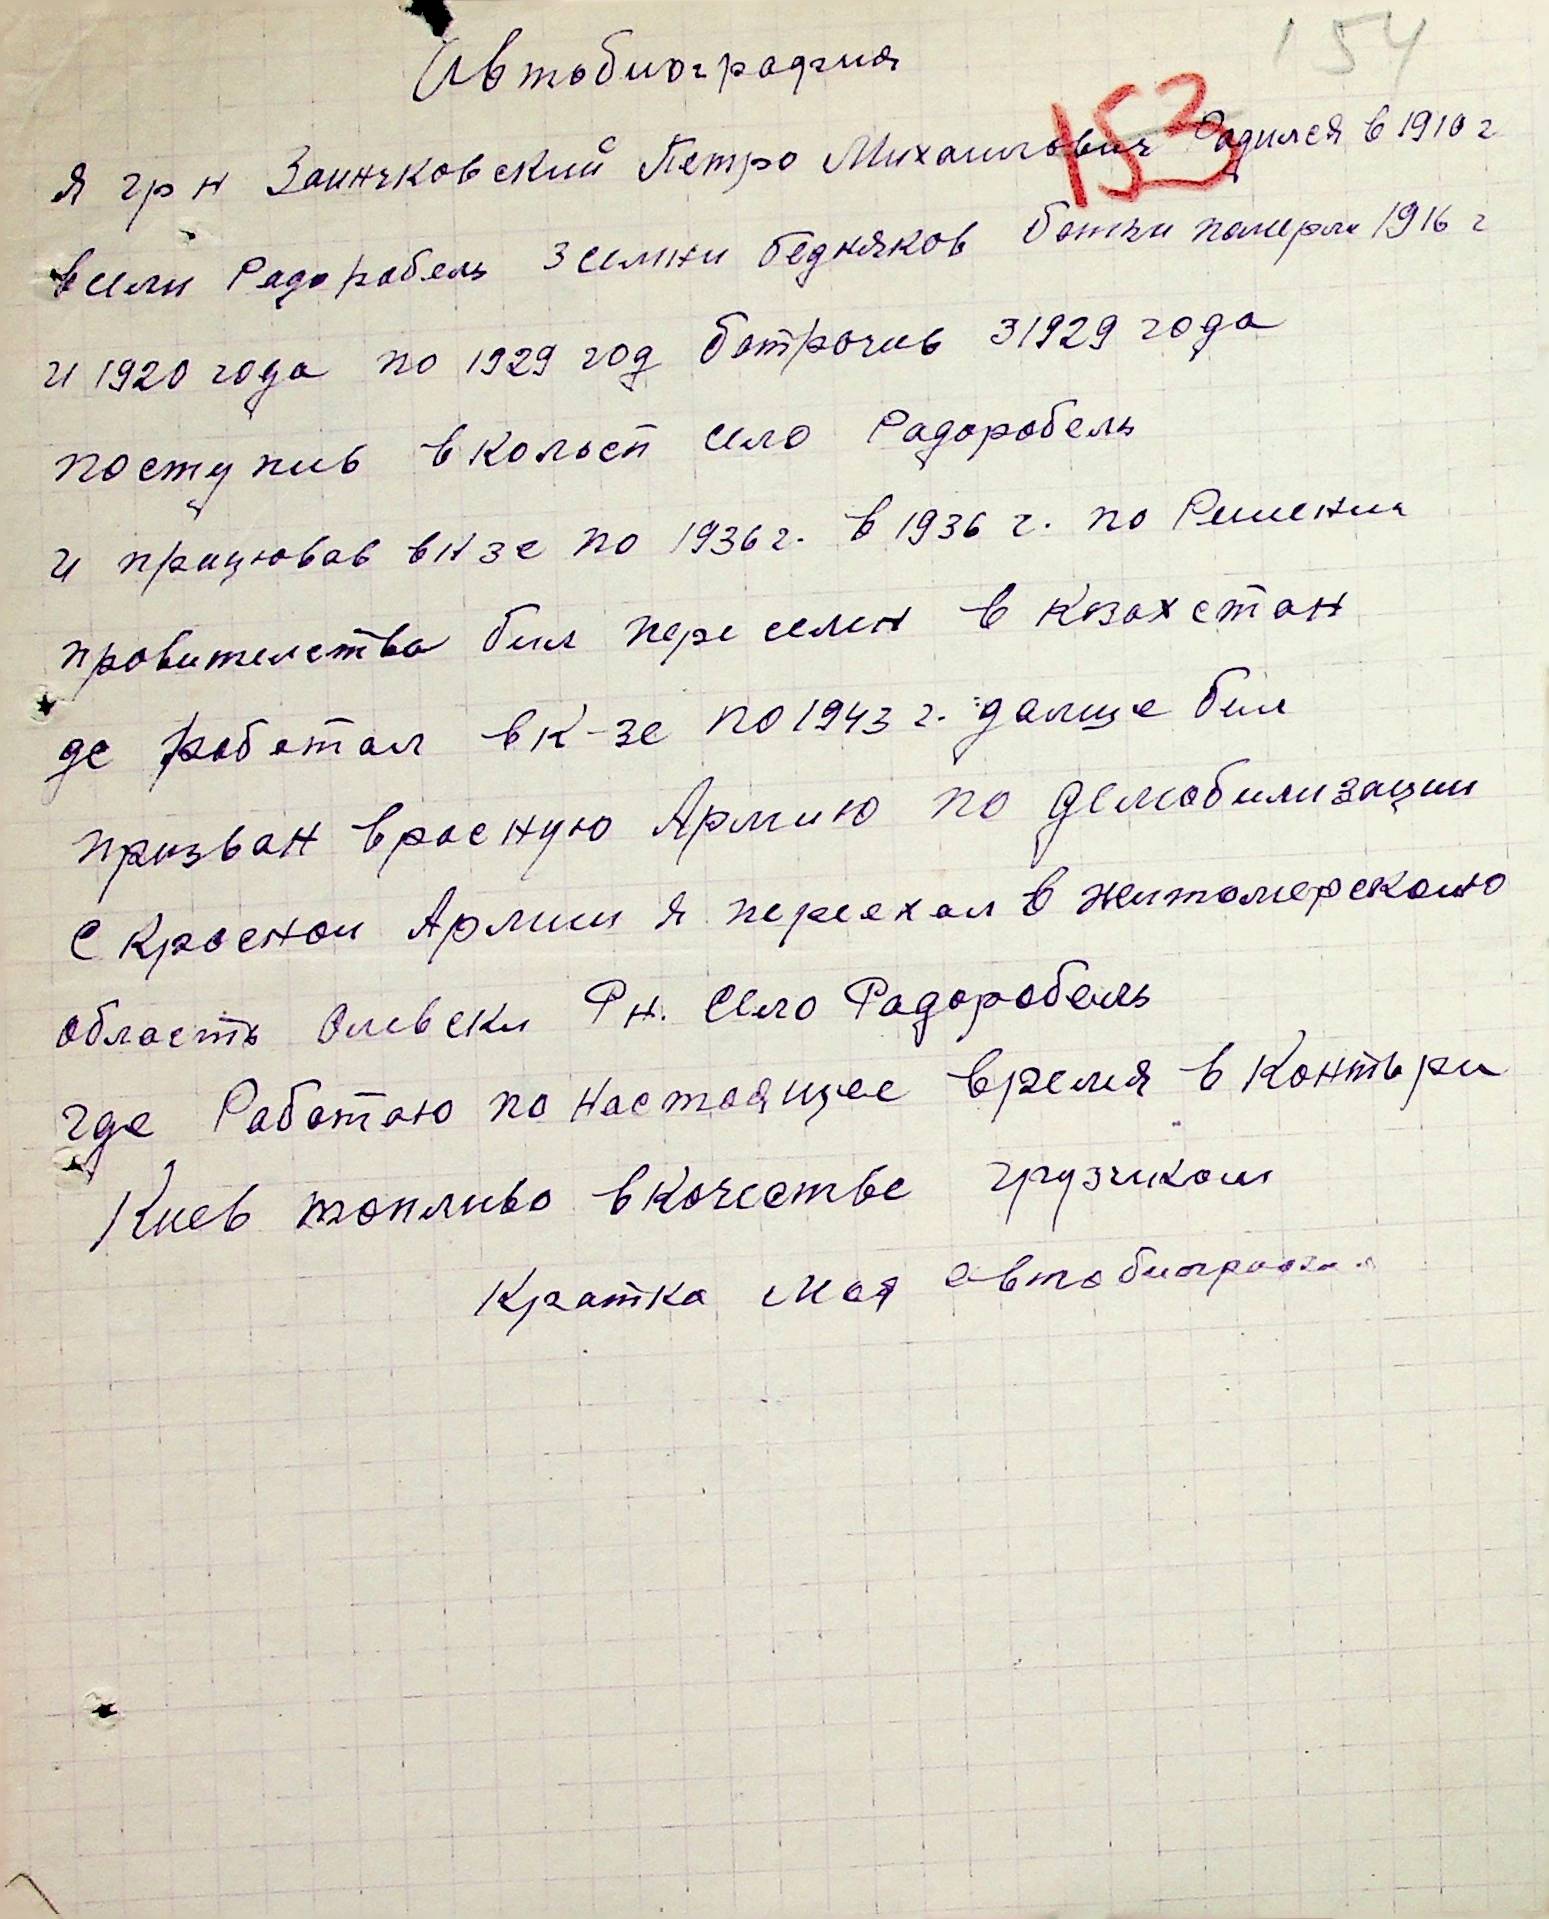 154
Автобиография
153
Я гр н Заинчковский Петро Михаилович Родился в 1910 г
в сели Радоробель з семни бедняков батьки померли 1916 г
и 1920 года по 1929 год батрачив з 1929 года
поступив в кольсп село Радоробель
и працював в кзе по 1936 г. в 1936 г. по Решению
правителства бил переселен в Казахстан
де работал в к-зе по 1943 г. далще бил
призван в расную Армию по демобилизации
с Красной Армии я переехал в Житомерскою
область Олевски Рн. Село Радоробель
где Работаю по настоящее время в Контьри
Киев топливо в качестве грузчиком
Кратка моя автобиография